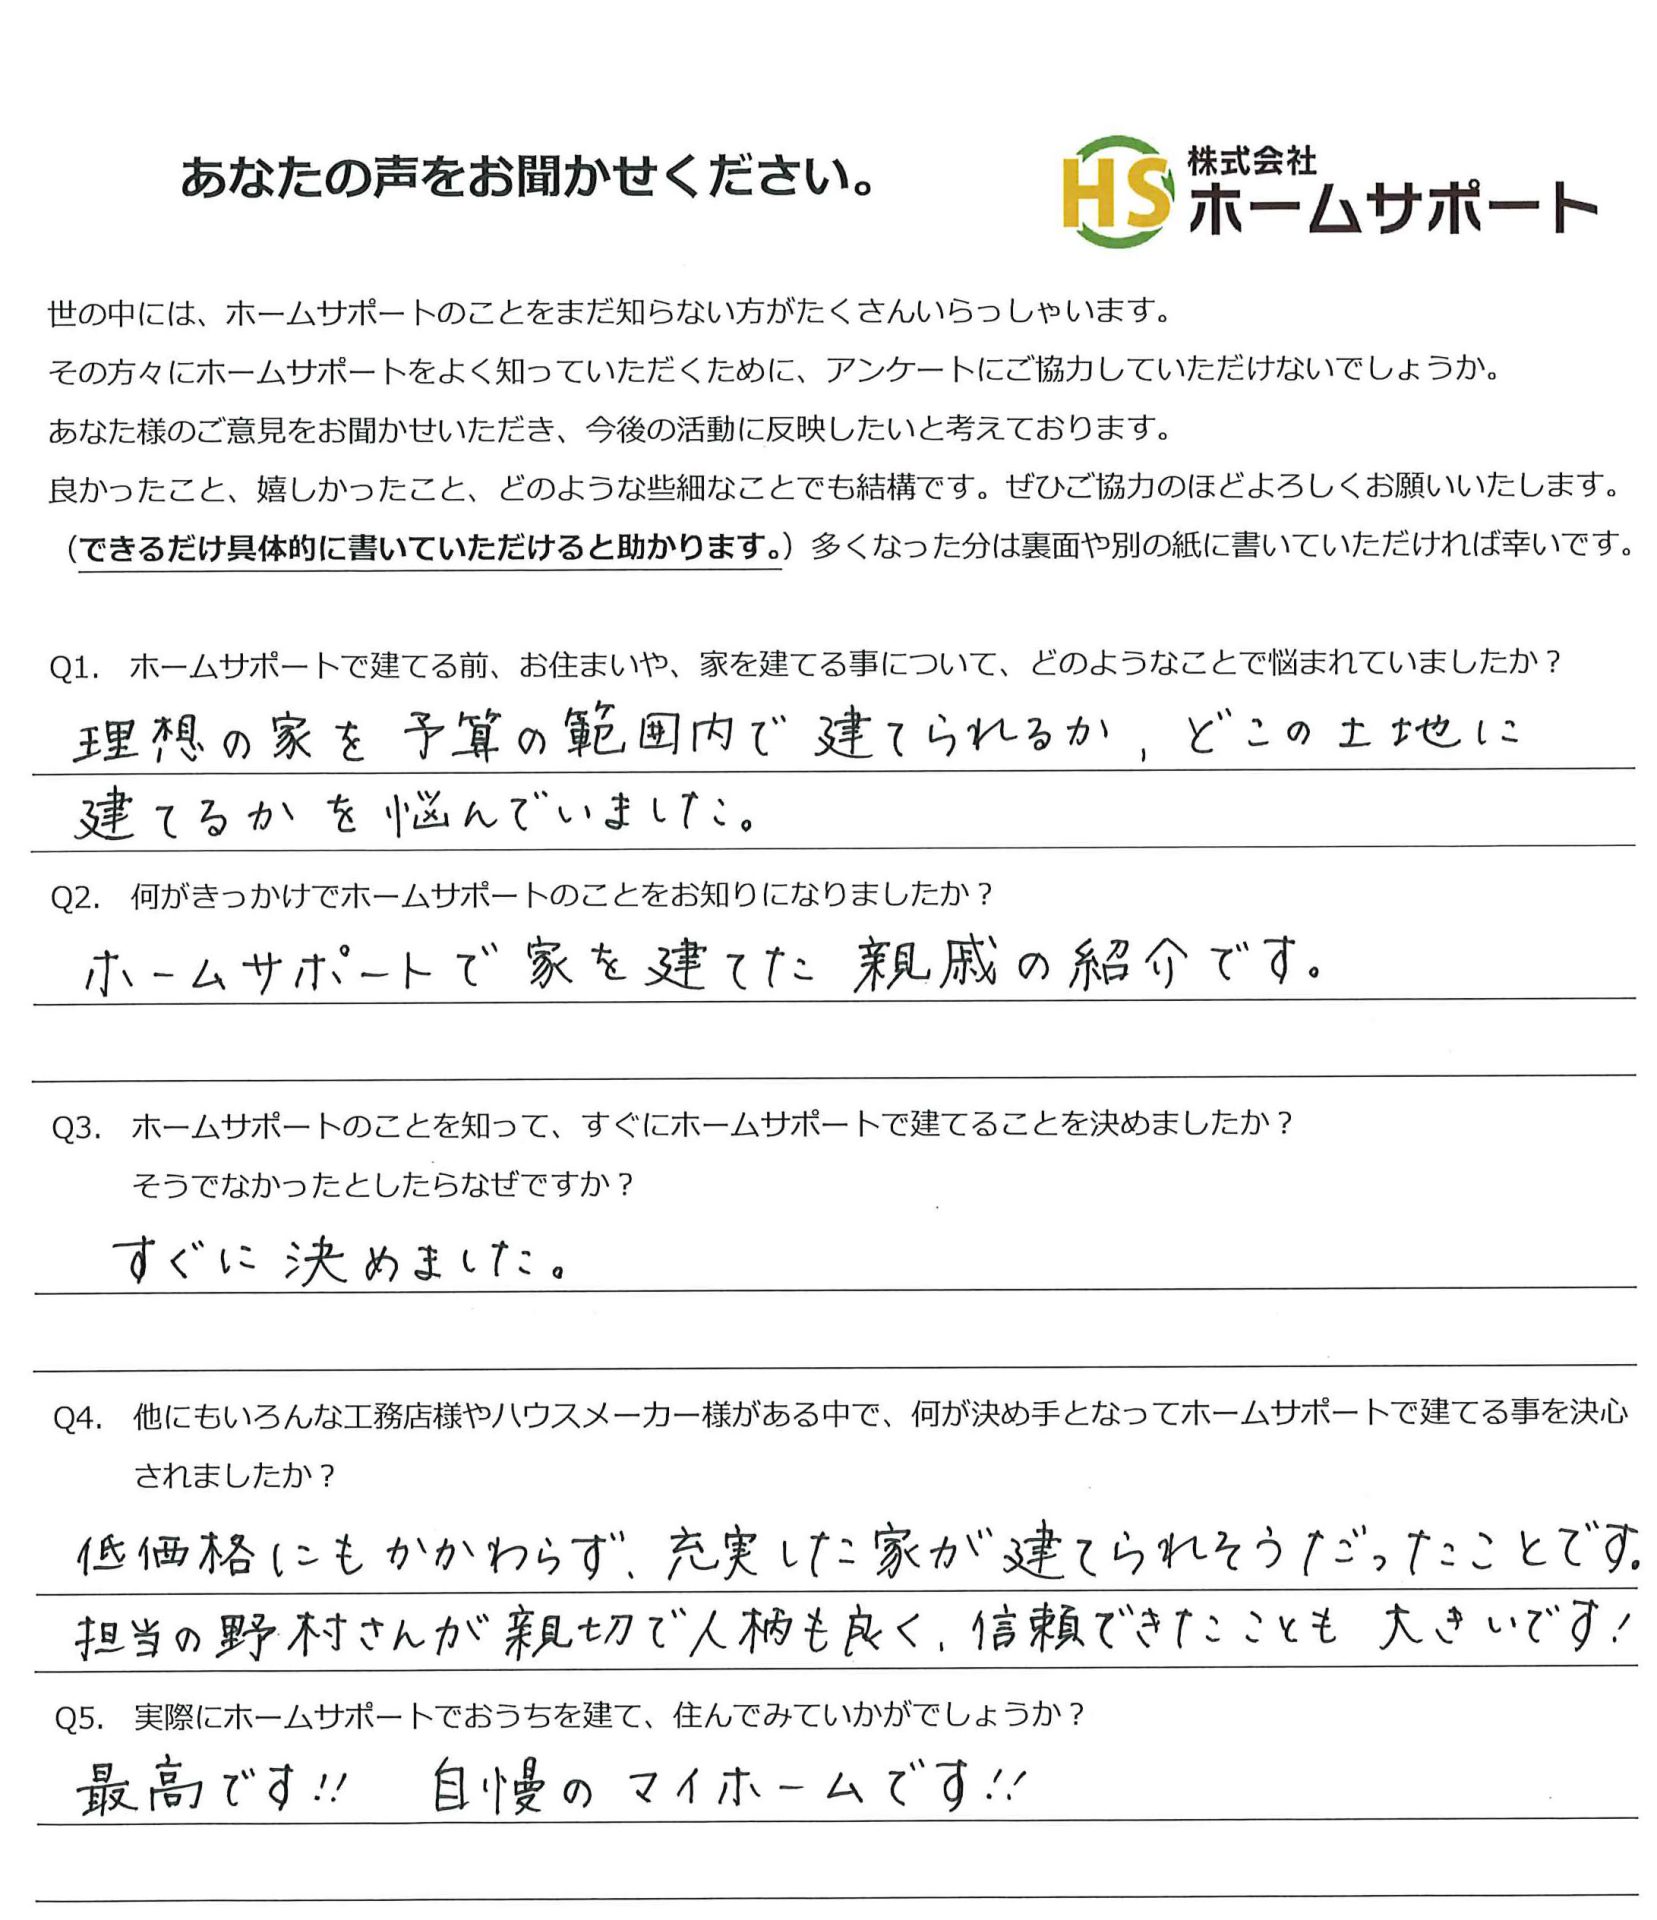 あなたの声をお聞かせください。
HS 株式会社
ホームサポート
世の中には、ホームサポートのことをまだ知らない方がたくさんいらっしゃいます。
その方々にホームサポートをよく知っていただくために、アンケートにご協力していただけないでしょうか。
あなた様のご意見をお聞かせいただき、今後の活動に反映したいと考えております。
良かったこと、嬉しかったこと、どのような些細なことでも結構です。ぜひご協力のほどよろしくお願いいたします。
（できるだけ具体的に書いていただけると助かります。）多くなった分は裏面や別の紙に書いていただければ幸いです。
Q1. ホームサポートで建てる前、お住まいや、家を建てる事について、どのようなことで悩まれていましたか？
理想の家を予算の範囲内で建てられるか、どこの土地に
建てるかを悩んでいました。
Q2. 何がきっかけでホームサポートのことをお知りになりましたか？
ホームサポートで家を建てた親戚の紹介です。
Q3. ホームサポートのことを知って、すぐにホームサポートで建てることを決めましたか？
そうでなかったとしたらなぜですか？
すぐに決めました。
Q4. 他にもいろんな工務店様やハウスメーカー様がある中で、何が決め手となってホームサポートで建てる事を決心
されましたか？
低価格にもかかわらず、充実した家が建てられそうだったことです。
担当の野村さんが親切で人柄も良く、信頼できたことも大きいです！
Q5. 実際にホームサポートでおうちを建て、住んでみていかがでしょうか？
最高です!! 自慢のマイホームです!!